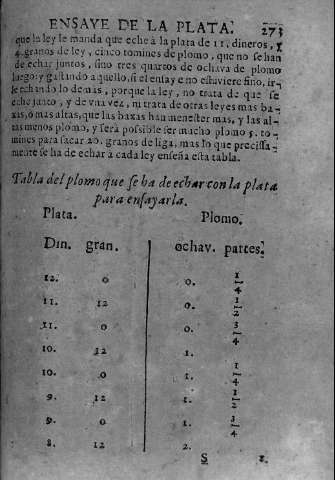 ENSAYE DE LA PLATA. 273
que la ley le manda que eche à la plata de 11, dineros, y
4. granos de ley, cinco tomines de plomo, que no se han
de echar juntos, sino tres quartos de ochava de plomo
luego: y gastando aquello, si el ensaye no estuviere fino, ir-
le echando lo demàs, porque la ley, no trata de que se
eche junto, y de vna vez, ni trata de otras leyes mas ba-
xas, ò mas altas, que las baxas han menester mas, y las al-
tas menos plomo, y serà possible ser mucho plomo 5. to-
mines para sacar 20. granos de liga, mas lo que precissa-
mente se ha de echar à cada ley enseña esta tabla.
Tabla del plomo que se ha de echar con la plata
para ensayarla.
Plata. Plomo.
Din. gran. ochav. partes.
12. 0 0. 1/4
11. 12 0. 1/2
11. 0 0. 3/4
10. 12 1.
10. 0 1. 1/4
9. 12 1. 1/2
9. 0 1. 3/4
8. 12 2.
S 8.